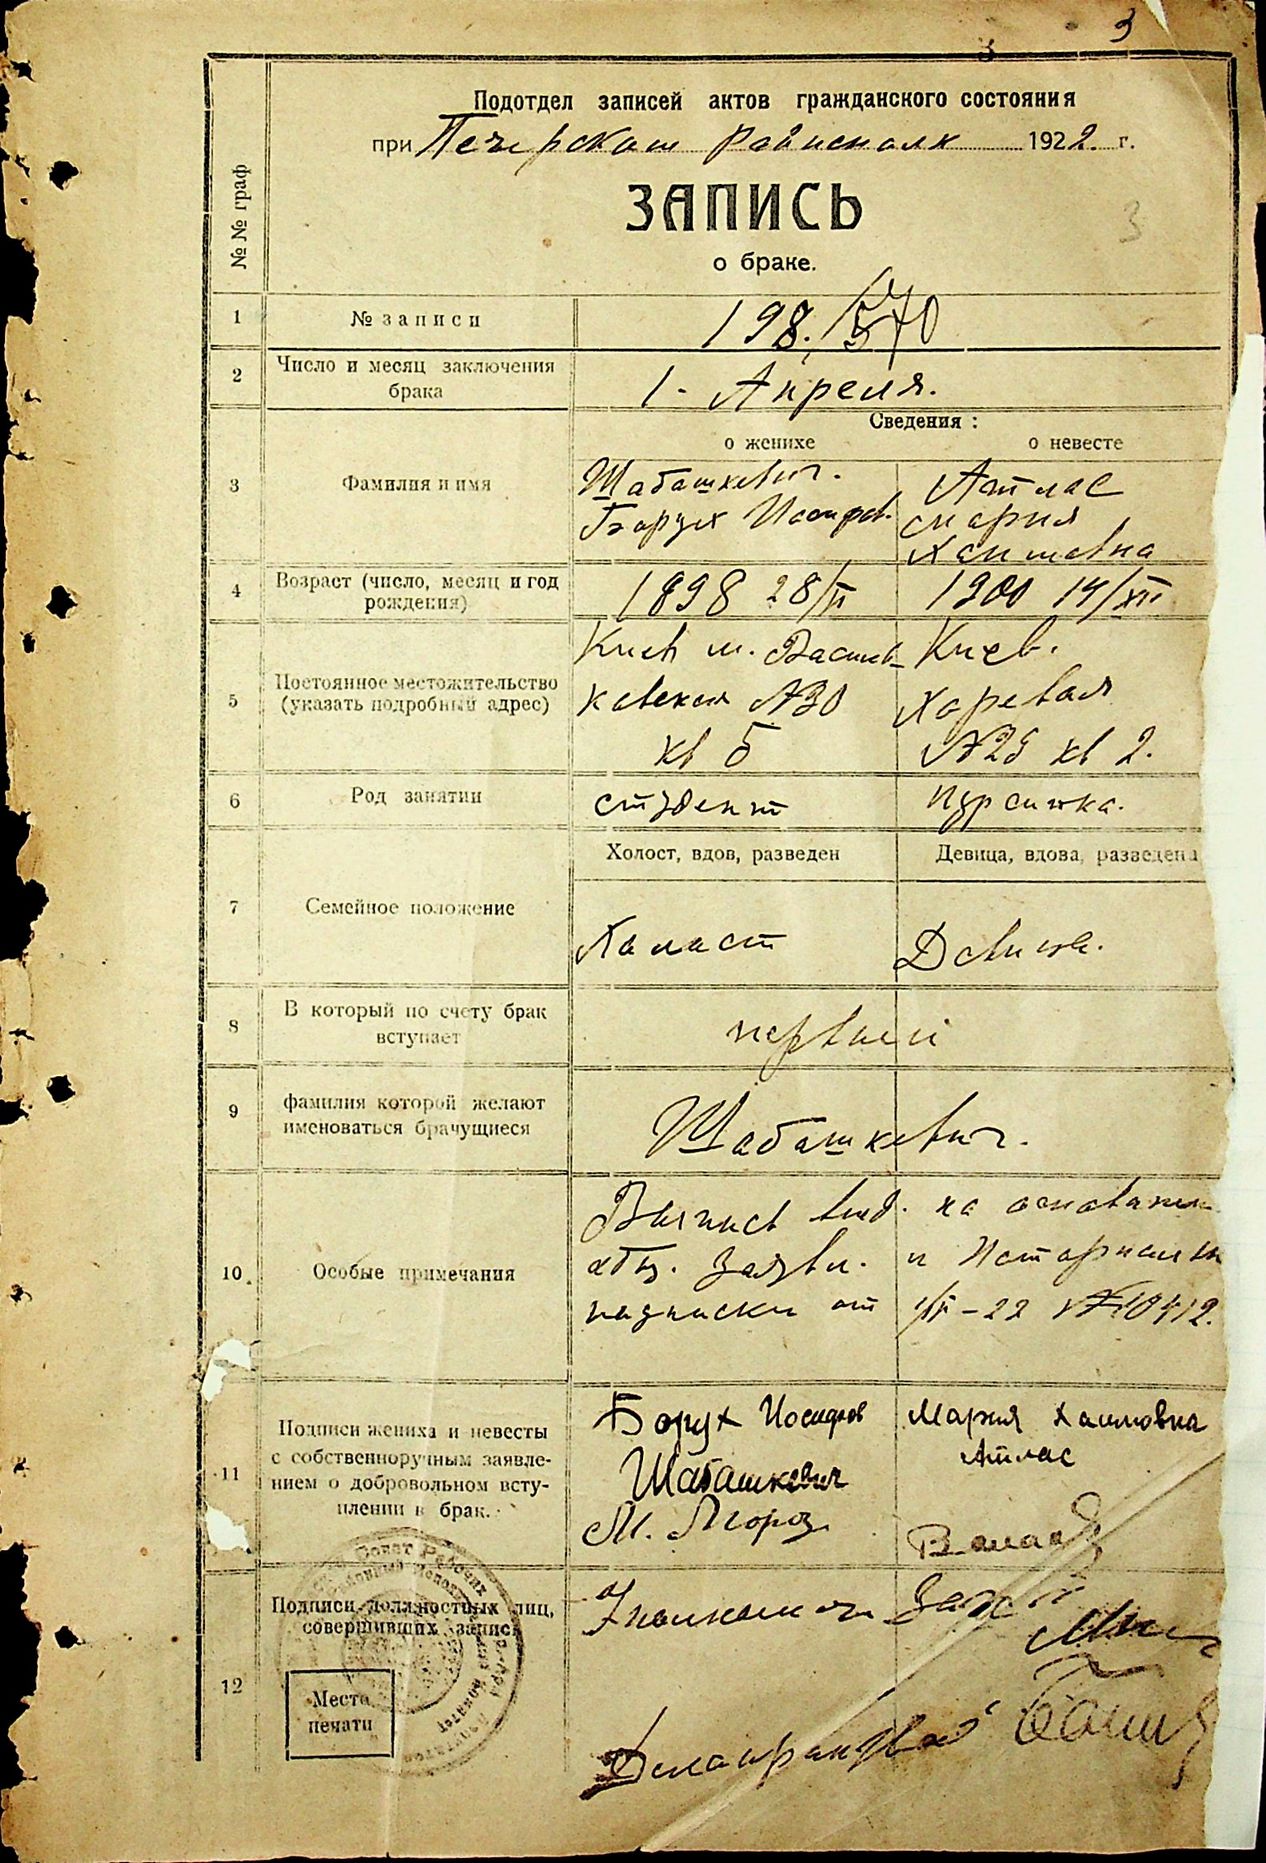 3
3
Подотдел записей актов гражданского состояния
при Печерском Райисполк 1922. г.
3
ЗАПИСЬ
о браке.
№ № граф
1 № записи 198. /570
2 Число и месяц заключения
брака
1 - Апреля.
Сведения :
о женихе о невесте
3 Фамилия и имя
Шабашкевич.
Борух Иосифов.
Атлас
Мария
Хаимовна
4 Возраст (число, месяц и год
рождения)
1898 28/II
1900 14/XII
5 Постоянное местожительство
(указать подробный адрес)
Киев м. Василь-
ковская №30
кв 5
Киев.
Хоревая
№25 кв 2.
6 Род занятии
студент
курсистка.
Холост, вдов, разведен Девица, вдова, разведена
7 Семейное положение
Холост
Девица.
8 В который по счету брак
вступает
первый
9 фамилия которой желают
именоваться брачущиеся
Шабашкевич.
10. Особые примечания
Выпись выд. на основании
обоз. заявл. и Нотариальн
подписки от -22 №10412.
11 Подписи жениха и невесты
с собственноручным заявле-
нием о добровольном всту-
плении в брак.
Борух Иосифов
Шабашкевич
М.
Мария Хаимовна
Атлас
12 Подписи должностных лиц,
совершивших запись
Место
печати
Делопроизвод